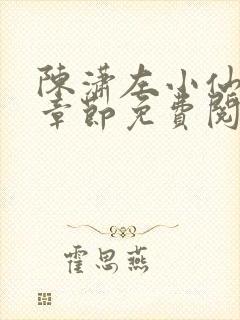 陳瀟左小仙
章節免費閱
霍思燕